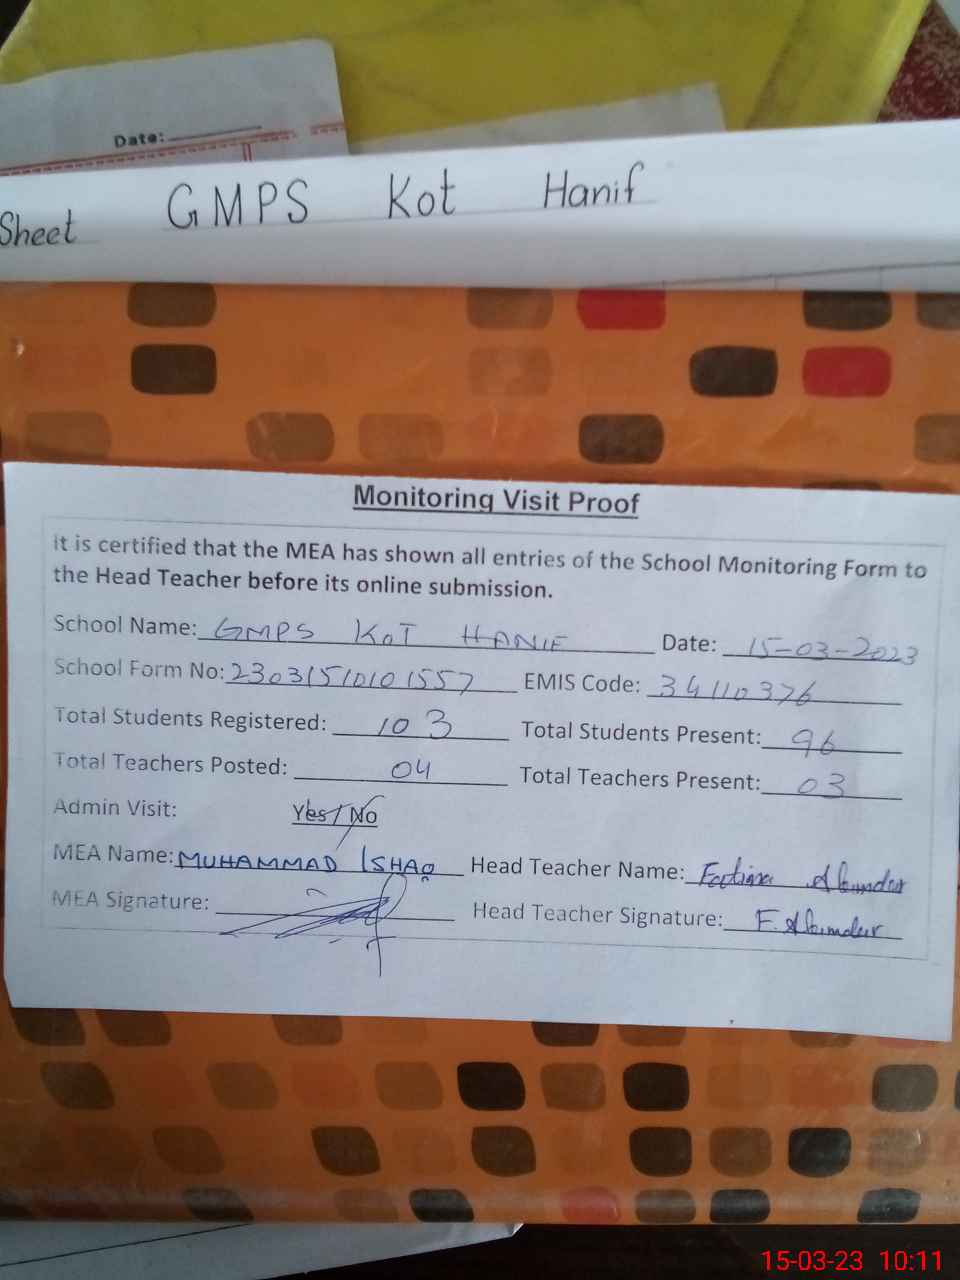 Date:
Sheet GMPS Kot Hanif
Monitoring Visit Proof
it is certified that the MEA has shown all entries of the School Monitoring Form to
the Head Teacher before its online submission.
School Name: GMPS KOT HANIF Date: 15-03-2023
School Form No: 23031510101557 EMIS Code: 34110376
Total Students Registered: 103 Total Students Present: 96
Total Teachers Posted: 04 Total Teachers Present: 03
Admin Visit: Yes/No
MEA Name: MUHAMMAD ISHAQ Head Teacher Name: Fatima
MEA Signature: Head Teacher Signature: F.
15-03-23 10:11